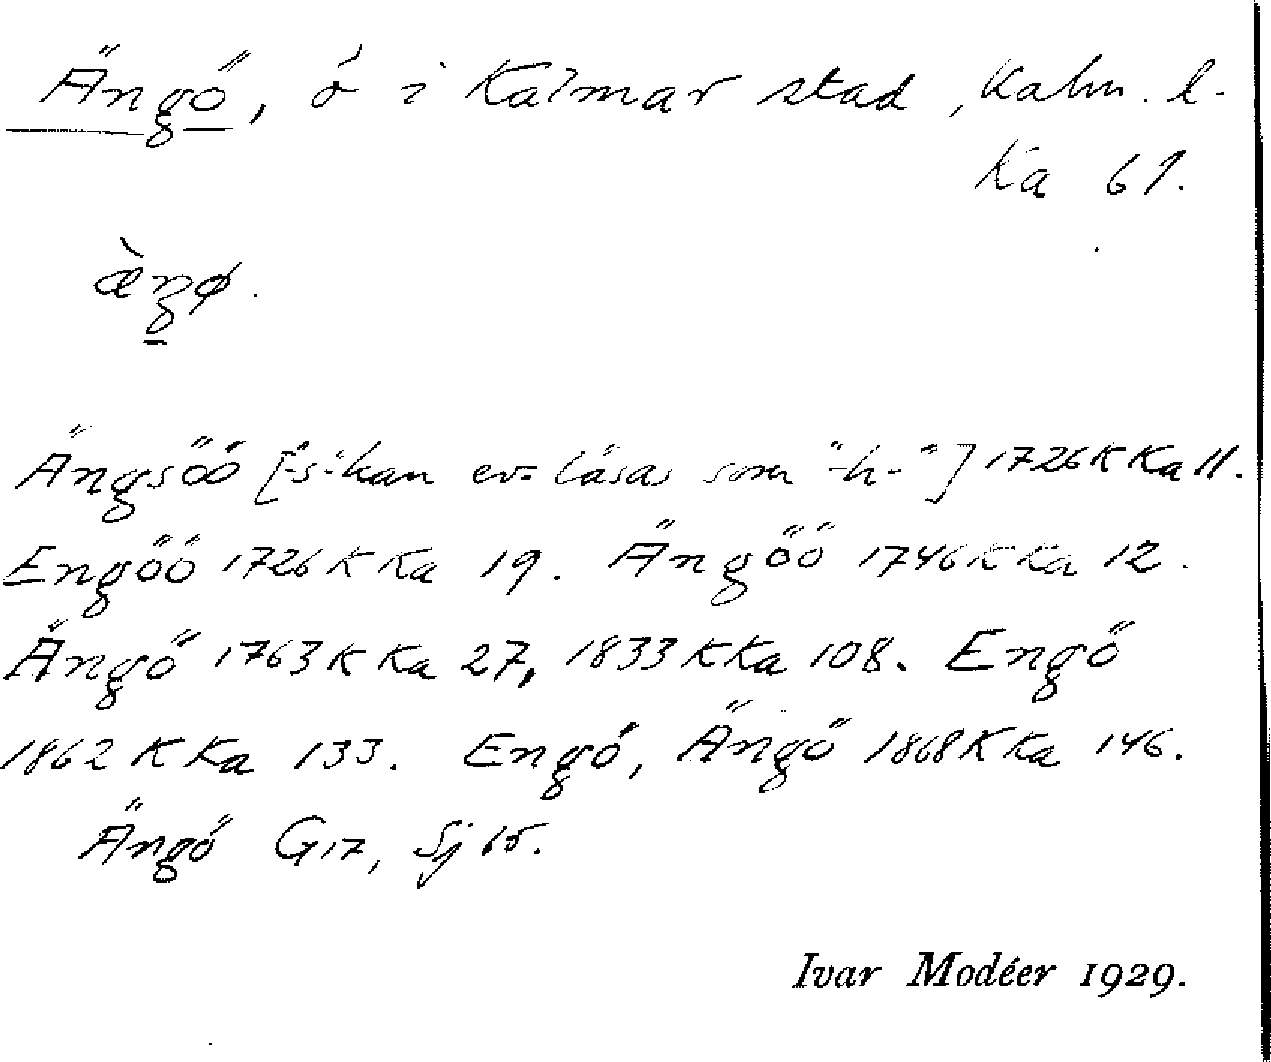 Ängö, ö i Kalmar stad, Kalm. l.
Ka 61.
æ̀ŋø.
Ängsöö ["-s-" kan ev. läsas som "-h-"] 1726 K Ka 11.
Engöö 1726 K Ka 19. Ängöö 1746 K Ka 12.
Ängö 1763 K Ka 27, 1833 K Ka 108. Engö
1862 K Ka 133. Engö, Ängö 1868 K Ka 146.
Ängö G17, Sj 65.
Ivar Modéer 1929.